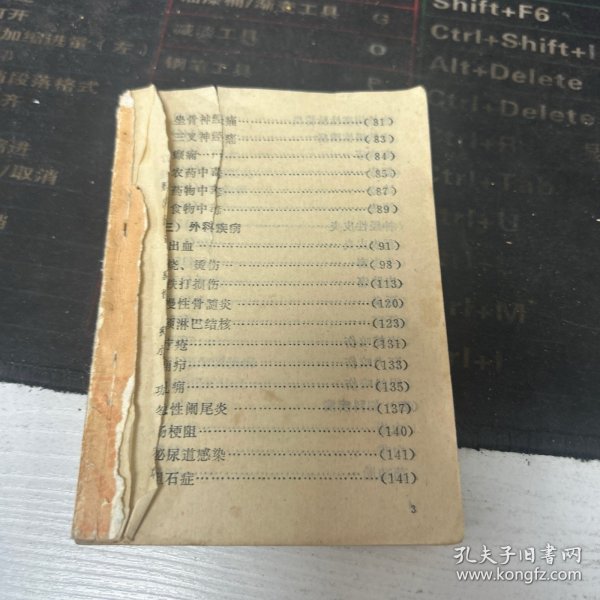 Shift+F6
减淡工具
G
Ctrl+Shift+I
钢笔工具
O
Alt+Delete
Ctrl+Delete
段落格式
/取消
坐骨神经痛 (81)
三叉神经痛 (83)
癫痫 (84)
农药中毒 (85)
药物中毒 (87)
食物中毒 (89)
三）外科疾病
出血 (91)
烧、烫伤 (98)
跌打损伤 (113)
慢性骨髓炎 (120)
淋巴结核 (123)
疮 (131)
(133)
痛 (135)
性阑尾炎 (137)
肠梗阻 (140)
泌尿道感染 (141)
石症 (141)
3
孔夫子旧书网
www.kongfz.com